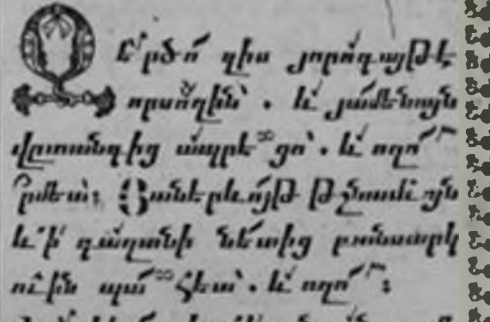 Զե՛րծո՛ զիս յորո՛գայթէ
որսո՛ղին՝. և՛ յամենայն
վըտանգից ապրեցո՝. և՛ ողո՛
րմեա՝։ Յաներևո՛յթ թշնամւոյն
և՛ ի գաղտնի նետից բանսարկ
ուին պահեա՝. և՛ ողո՛ր։